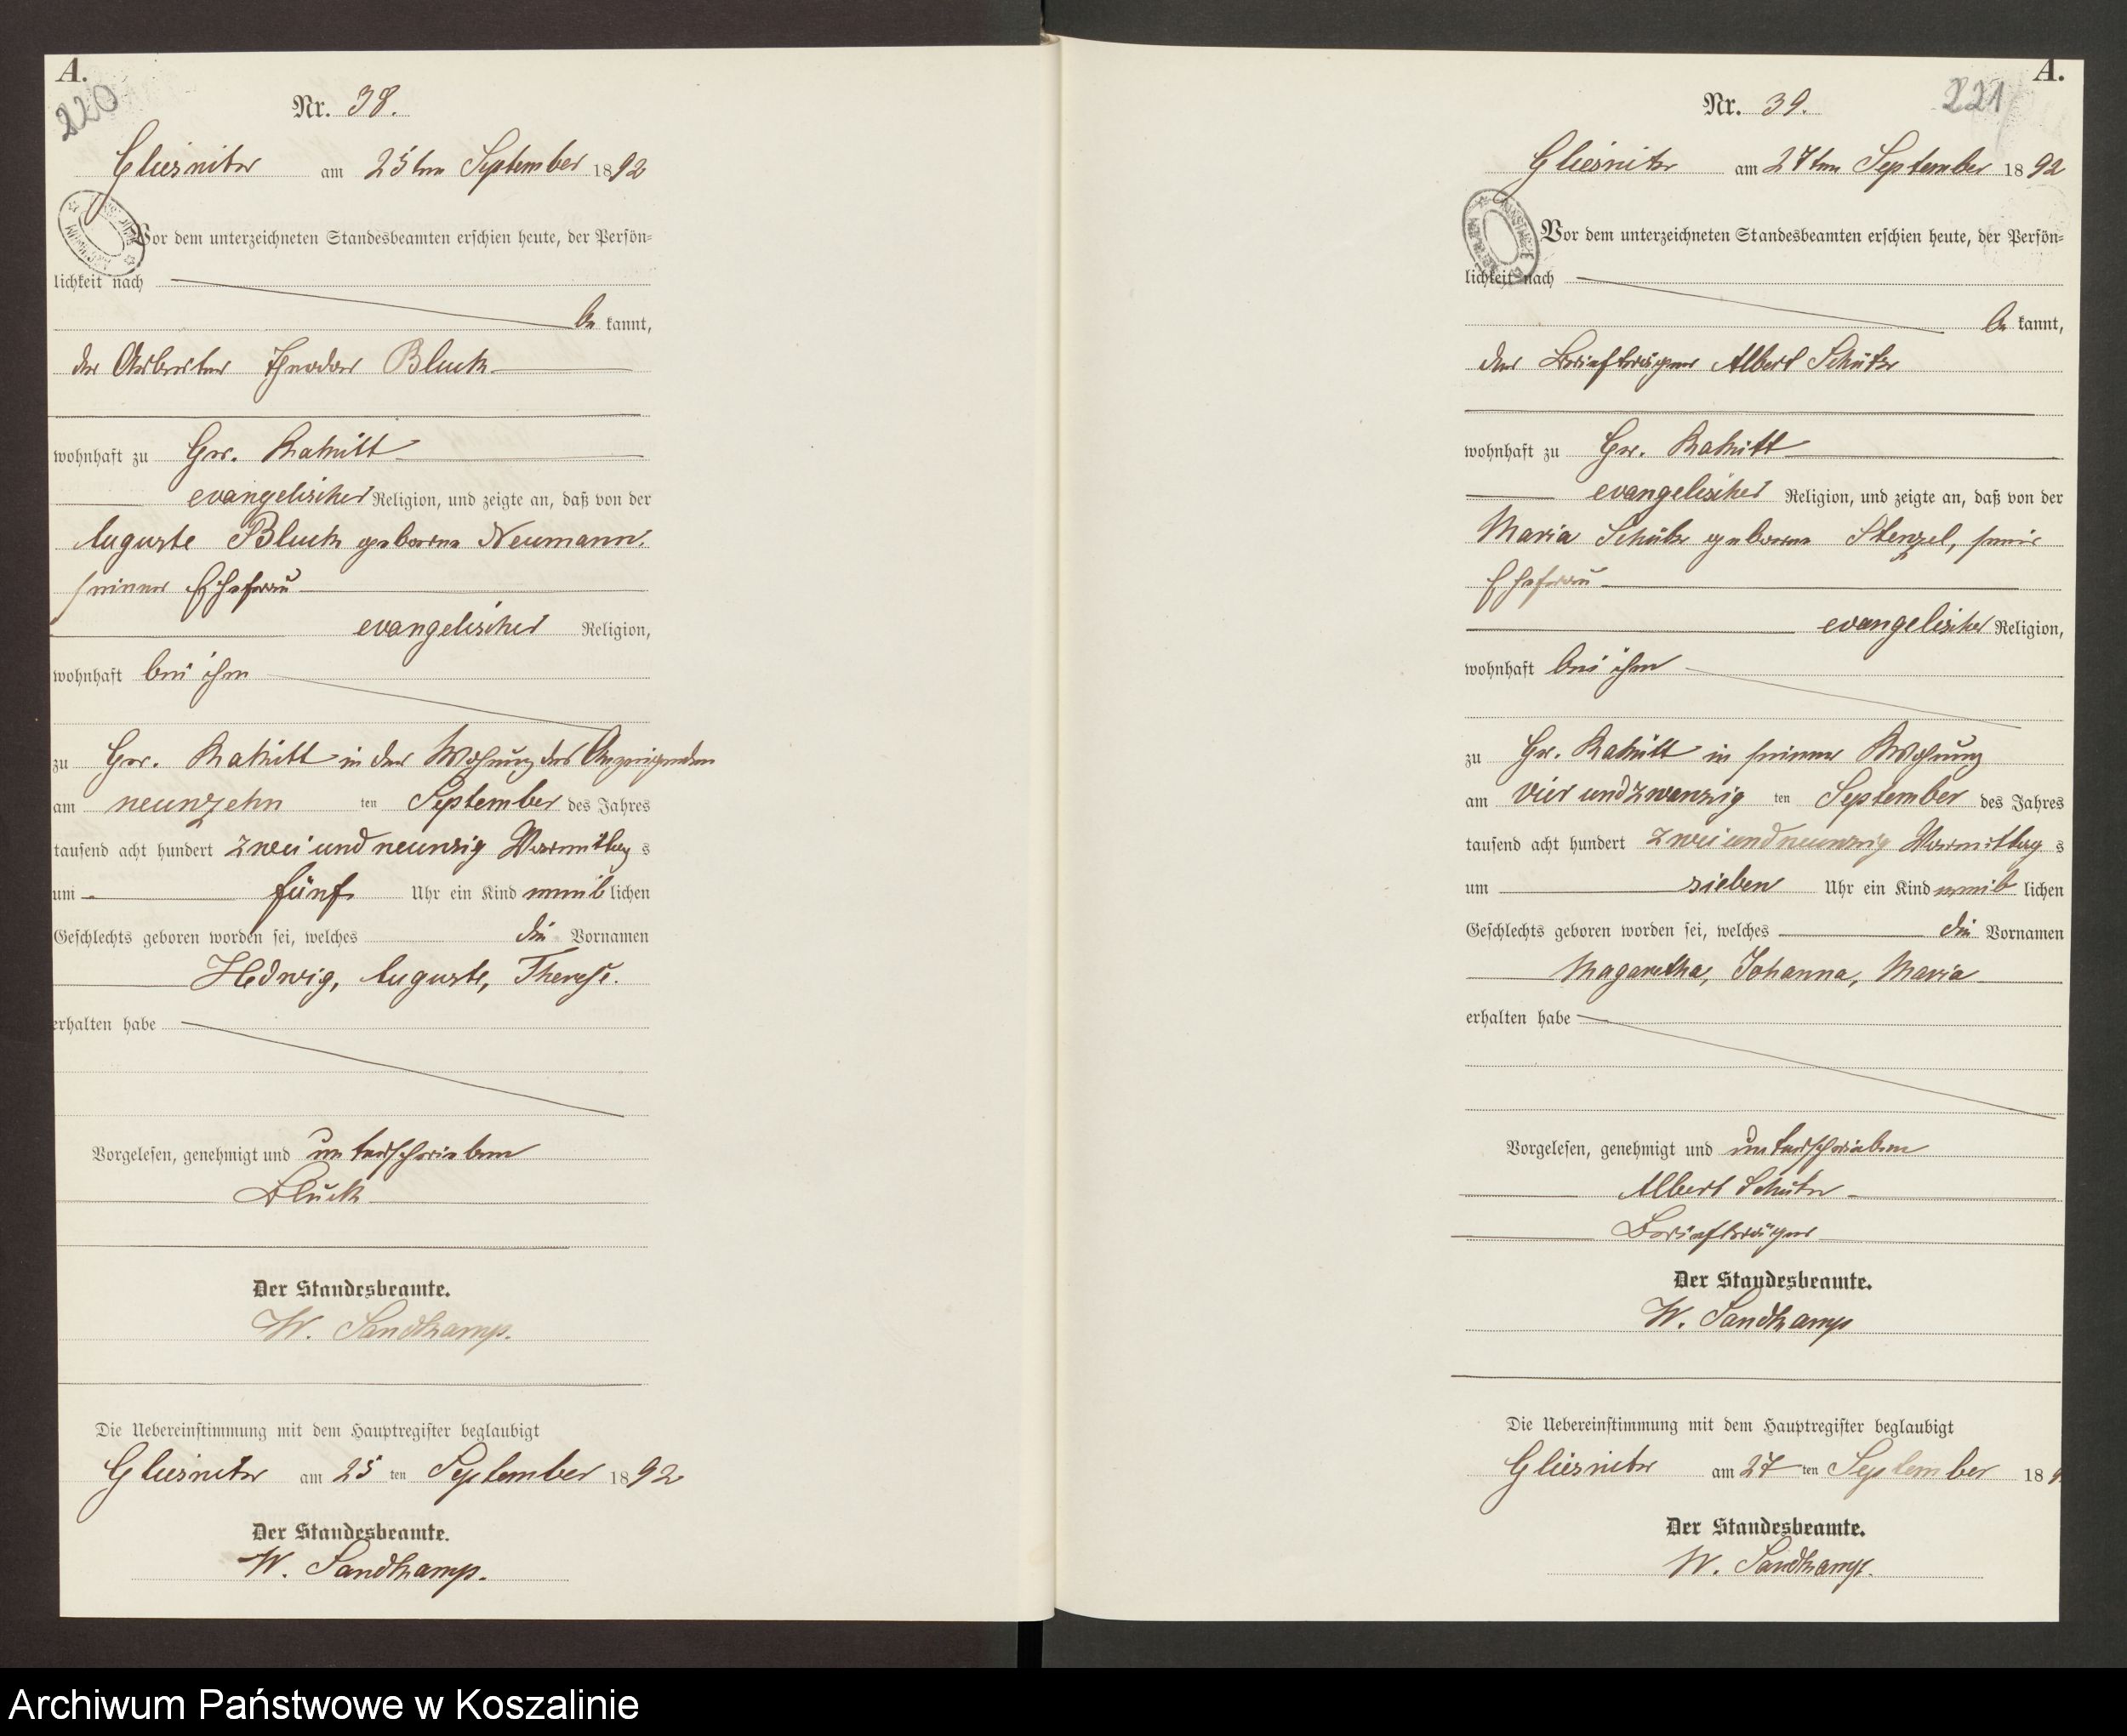 A.
220
Nr. 38.
Gliesnitz am 25ten September 1892
Vor dem unterzeichneten Standesbeamten erschien heute, der Persön=
lichkeit nach
be kannt,
der Arbeiter Theodor Bluck
wohnhaft zu Gr. Rakitt
evangelischer Religion, und zeigte an, daß von der
Auguste Bluck geborne Neumann,
seiner Ehefrau
evangelischer Religion,
wohnhaft bei ihm
zu Gr. Rakitt in der Wohnung des Anzeigenden
am neunzehn ten September des Jahres
tausend acht hundert zwei und neunzig Vormittag s
um fünf Uhr ein Kind weib lichen
Geschlechts geboren worden sei, welches die Vornamen
Hedwig, Auguste, Therese.
erhalten habe
Vorgelesen, genehmigt und unterschrieben
Bluck
Der Standesbeamte.
W. Sandkamp.
Die Uebereinstimmung mit dem Hauptregister beglaubigt
Gliesnitz am 25 ten September 1892
Der Standesbeamte.
W. Sandkamp.
A.
221
Nr. 39.
Gliesnitz am 27ten September 1892
Vor dem unterzeichneten Standesbeamten erschien heute, der Persön=
lichkeit nach
be kannt,
der Briefträger Albert Schütz
wohnhaft zu Gr. Rakitt
evangelischer Religion, und zeigte an, daß von der
Maria Schütz geborne Stenzel, seine
Ehefrau
evangelischer Religion,
wohnhaft bei ihm
zu Gr. Rakitt in seiner Wohnung
am vier und zwanzig ten September des Jahres
tausend acht hundert zwei und neunzig Vormittag s
um sieben Uhr ein Kind weib lichen
Geschlechts geboren worden sei, welches die Vornamen
Magaretha, Johanna, Maria
erhalten habe
Vorgelesen, genehmigt und unterschrieben
Albert Schütz
Briefträger
Der Standesbeamte.
W. Sandkamp
Die Uebereinstimmung mit dem Hauptregister beglaubigt
Gliesnitz am 27 ten September 189
Der Standesbeamte.
W. Sandkamp.
Archiwum Państwowe w Koszalinie